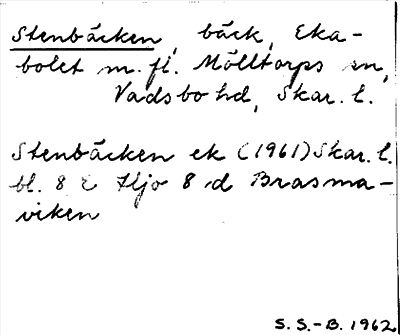 Stenbäcken, bäck, Eka-
bolet m. fl. Mölltorps sn,
Vadsbo hd, Skar. l.
Stenbäcken ek (1961) Skar. l.
bl. 8 E Hjo 8 d Brasma-
viken
S. S.-B. 1962